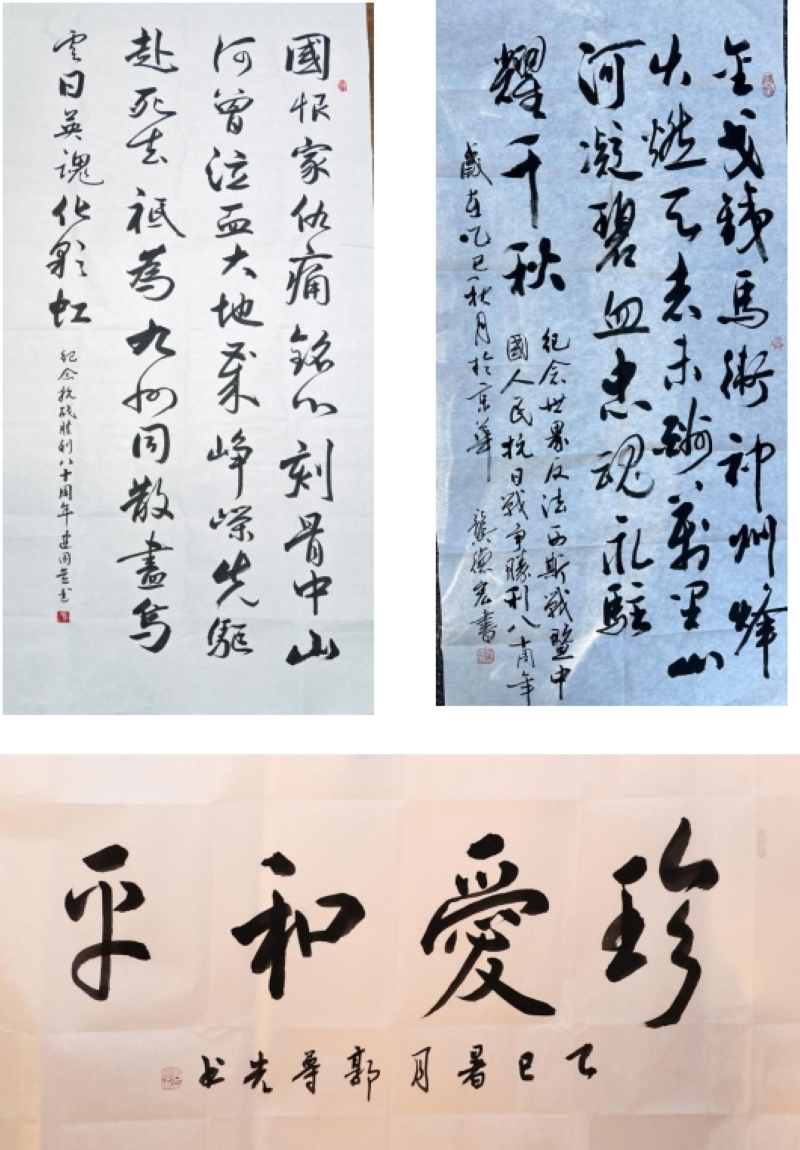 國恨家仇痛銘心刻骨中山
河曾泣血大地崢嶸先驅
赴死去祇為九州同散盡烏
雲日英魂化彩虹
紀念抗战胜利八十周年建国书
金戈鐵馬衛神州烽
火燃天志未萬里山
河凝碧血忠魂永駐
耀千秋
紀念世界反法西斯戰暨中
國人民抗日戰爭勝利八年
歲在乙巳秋月於京華 龔德宏書
珍愛和平
乙巳暑月郭尊先书